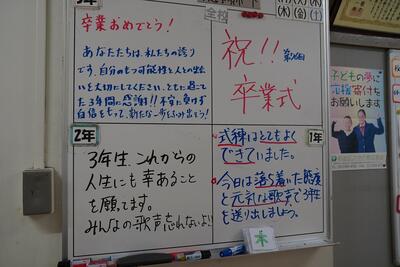 全校
(木)(金)(土)
卒業おめでとう!
あなたたちは、私たちの誇り
です。自分のもつ可能性と人との出会
いを大切にしてください。ともに過ごし
た3年間に感謝!!不安に負けず
自信をもって、新たな一歩をふみ出そう!
祝!!
卒業式
2年
3年生、これからの
人生にも幸あること
を願ってます。
みんなの歌声忘れないよ!!
1年
式練はとてもよく
できていました。
今日は落ち着いた態度
と元気な歌声で3年生
を送り出しましょう。
木
子どもの夢に
応援寄付を
お願いします